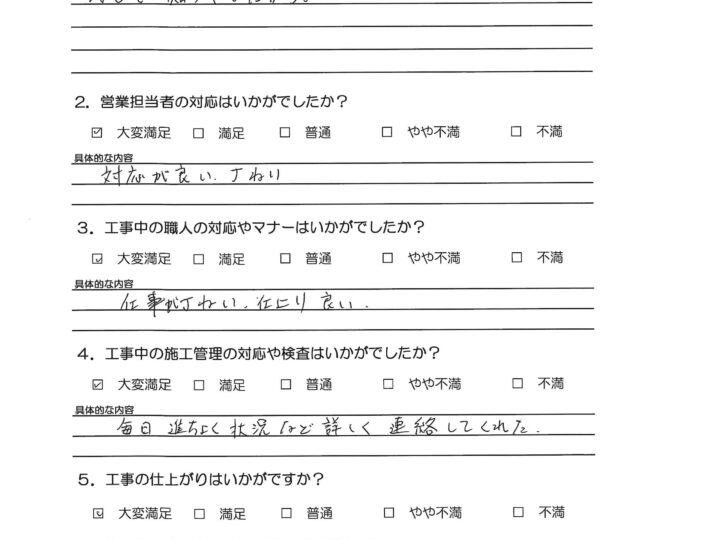 2. 営業担当者の対応はいかがでしたか?
☑ 大変満足 □ 満足 □ 普通 □ やや不満 □ 不満
具体的な内容
対応が良い、丁ねい
3. 工事中の職人の対応やマナーはいかがでしたか?
☑ 大変満足 □ 満足 □ 普通 □ やや不満 □ 不満
具体的な内容
仕事が丁ねい、仕上り良い.
4. 工事中の施工管理の対応や検査はいかがでしたか?
☑ 大変満足 □ 満足 □ 普通 □ やや不満 □ 不満
具体的な内容
毎日 進ちょく状況など詳しく 連絡してくれた.
5. 工事の仕上がりはいかがですか?
☑ 大変満足 □ 満足 □ 普通 □ やや不満 □ 不満